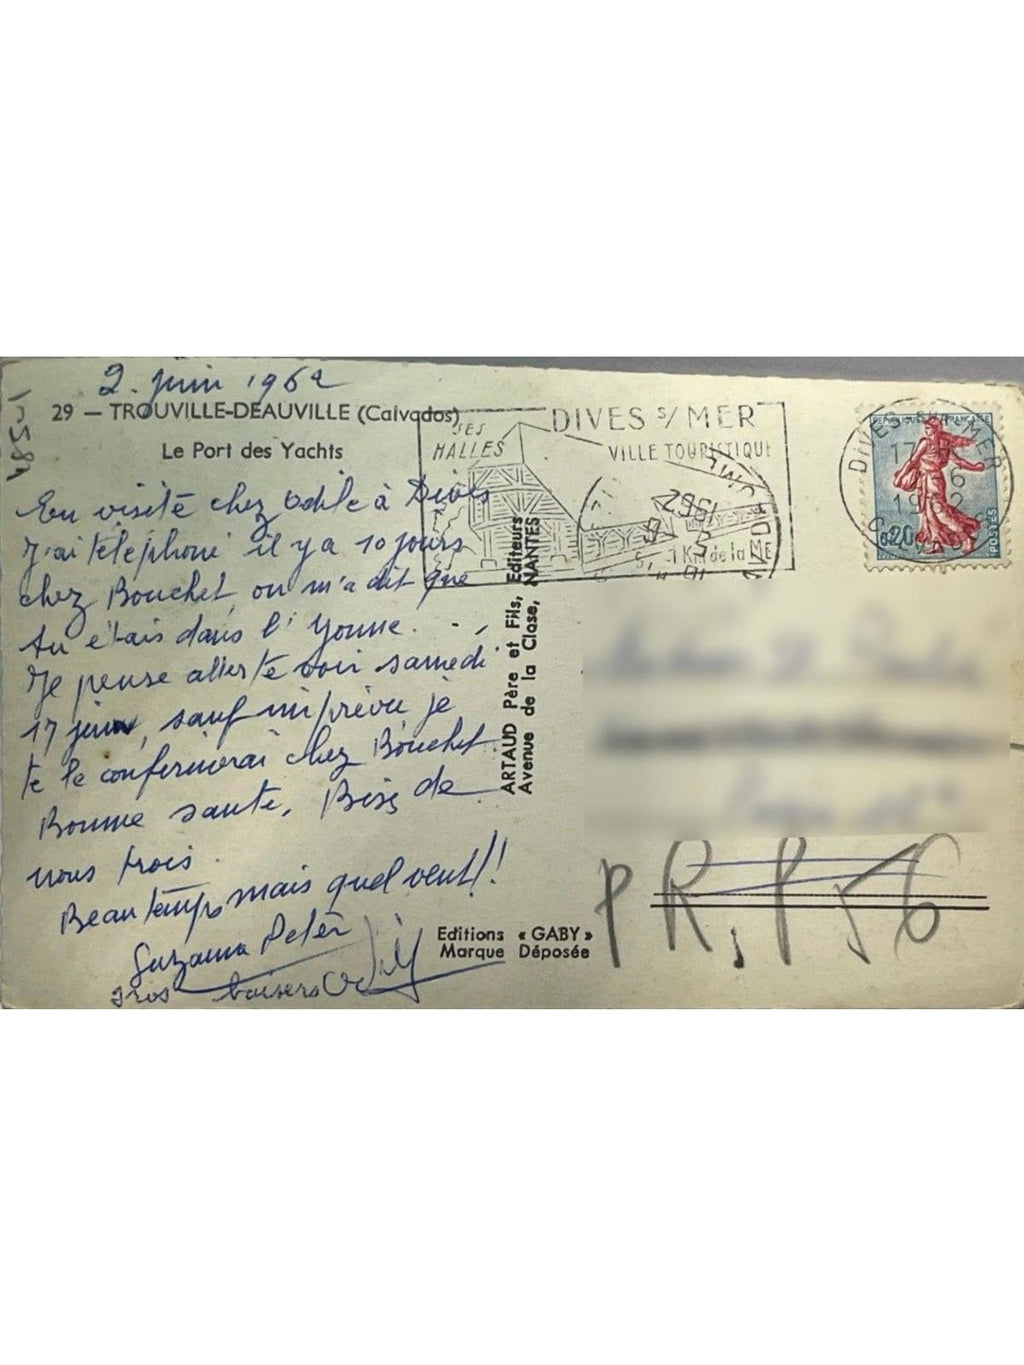 2. juin 1962
29 — TROUVILLE-DEAUVILLE (Calvados)
Le Port des Yachts
En visite chez Odile à Dives
J'ai téléphoné il y a 10 jours
chez Bouchet, on m'a dit que
tu étais dans l'Yonne.
Je pense aller te voir samedi
17 juin, sauf imprévu je
te le confirmerai chez Bouchet.
Bonne santé, Bises de
nous trois.
Beau temps mais quel vent!!
Suzanna Peter
gros baisers
SES
HALLES
DIVES s/ MER
VILLE TOURISTIQUE
1 Km de la
1962
DIVES-SUR-MER
17 H
6
1962
REPUBLIQUE FRANÇAISE
0,20
POSTES
ARTAUD Père et Fils, Editeurs
Avenue de la Close, NANTES
Editions « GABY »
Marque Déposée
PR, P56